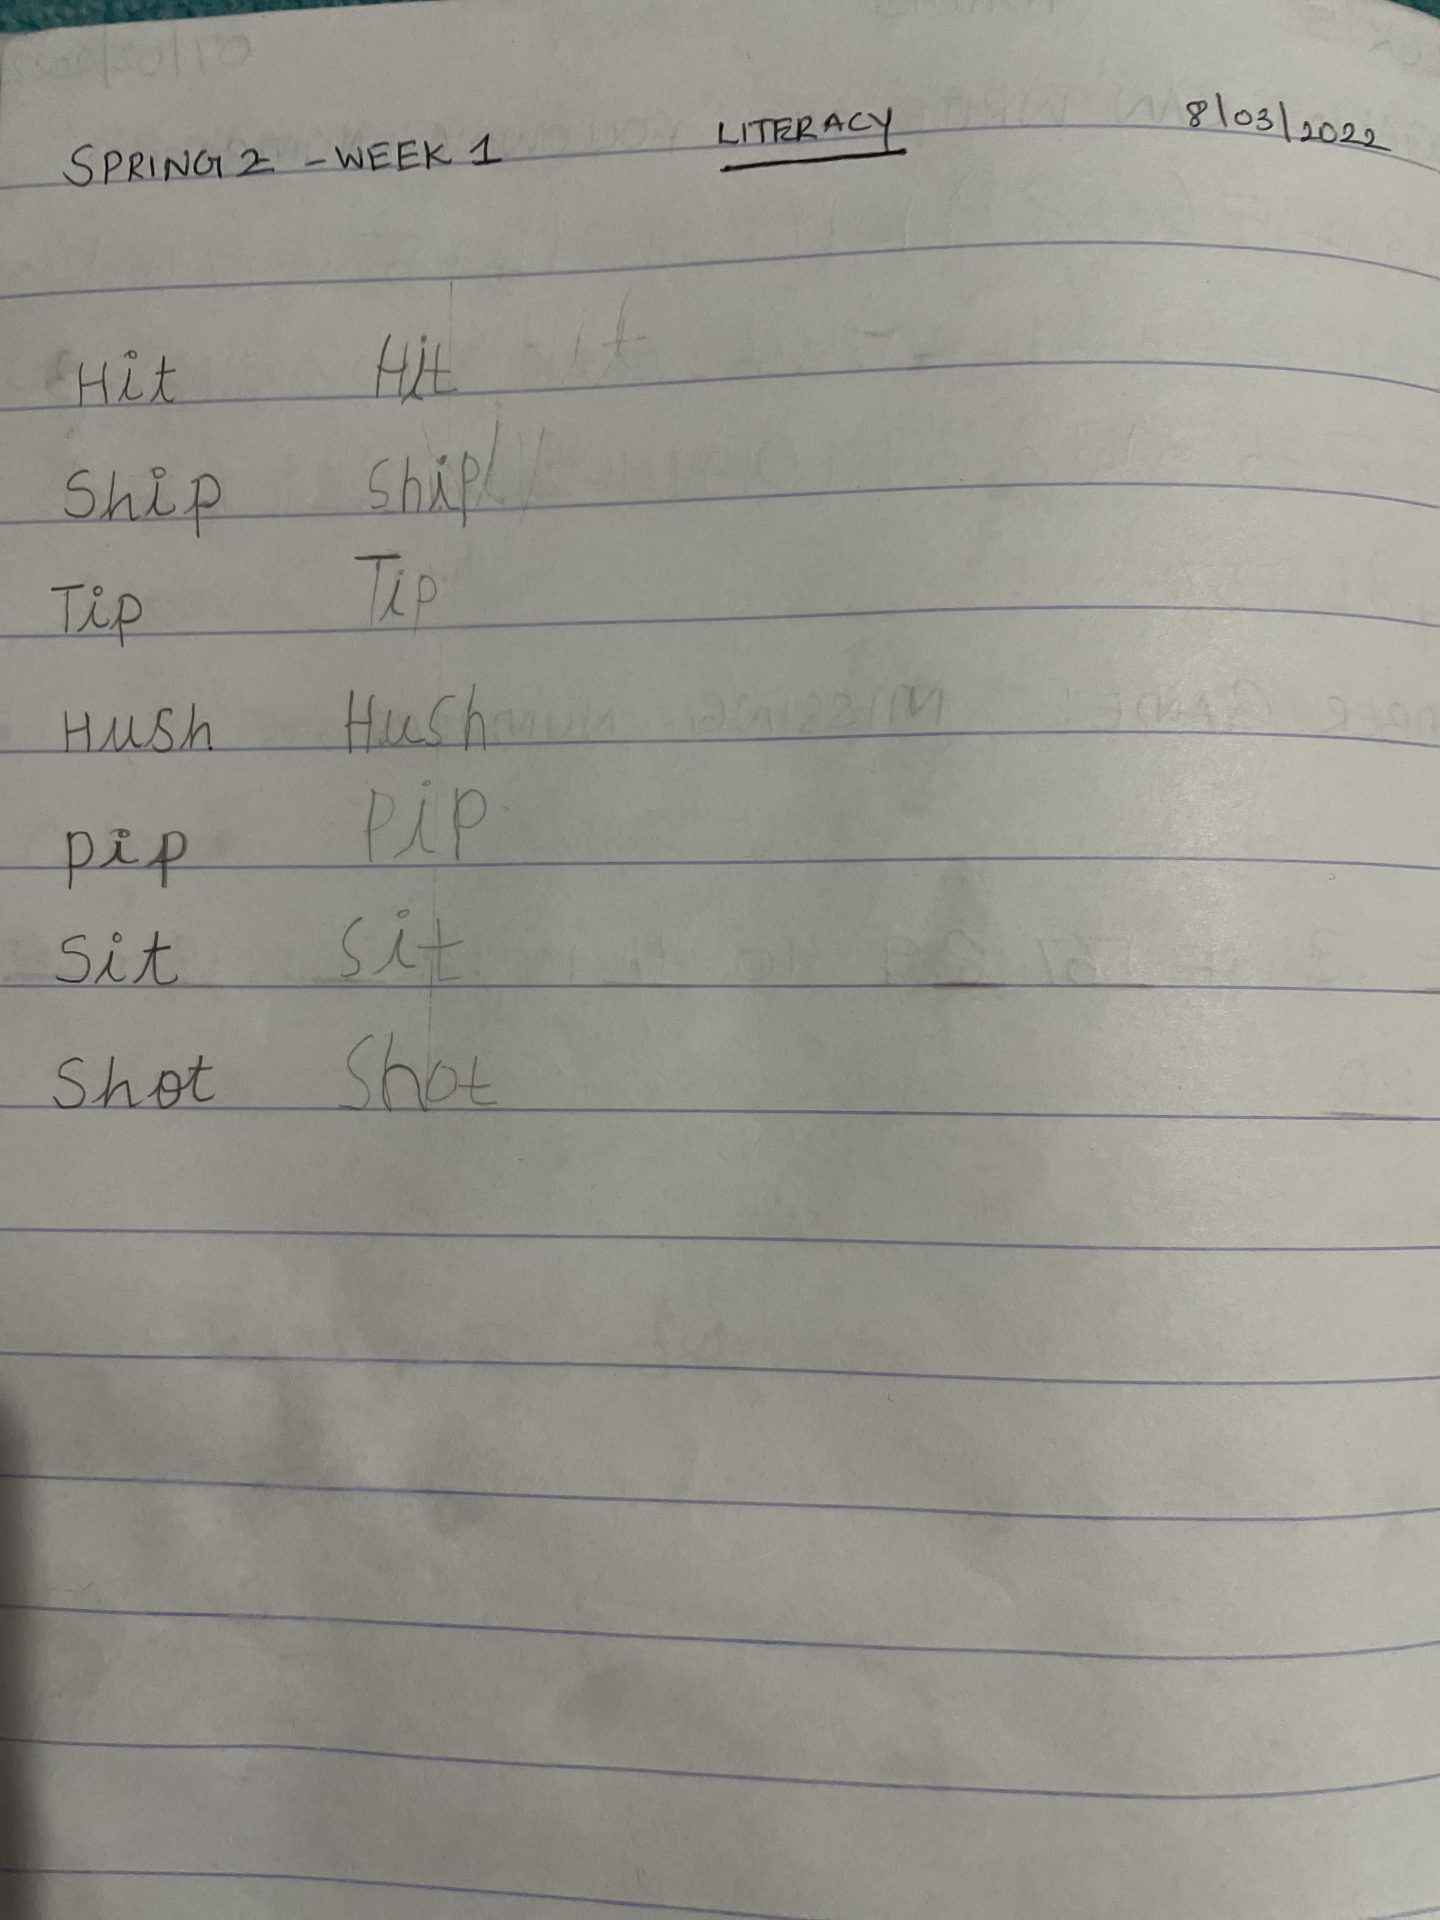 SPRING 2 - WEEK 1 LITERACY 8/03/2022
Hit Hit Hit
Ship Ship
Tip Tip
Hush Hush
pip pip
Sit Sit
Shot Shot